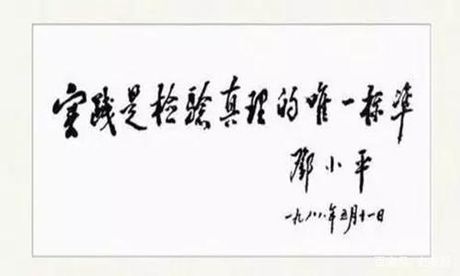 实践是检验真理的唯一標準
鄧小平
一九八八年五月十一日